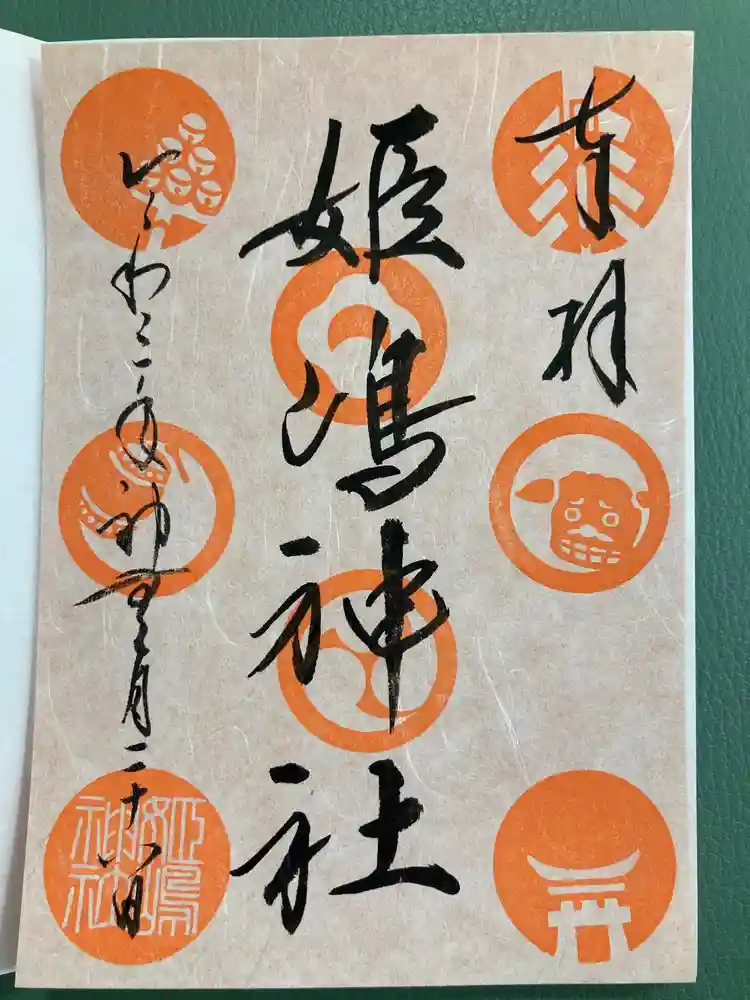 奉拝
姫嶋神社
令和三年神無月二十六日
姫嶋
神社